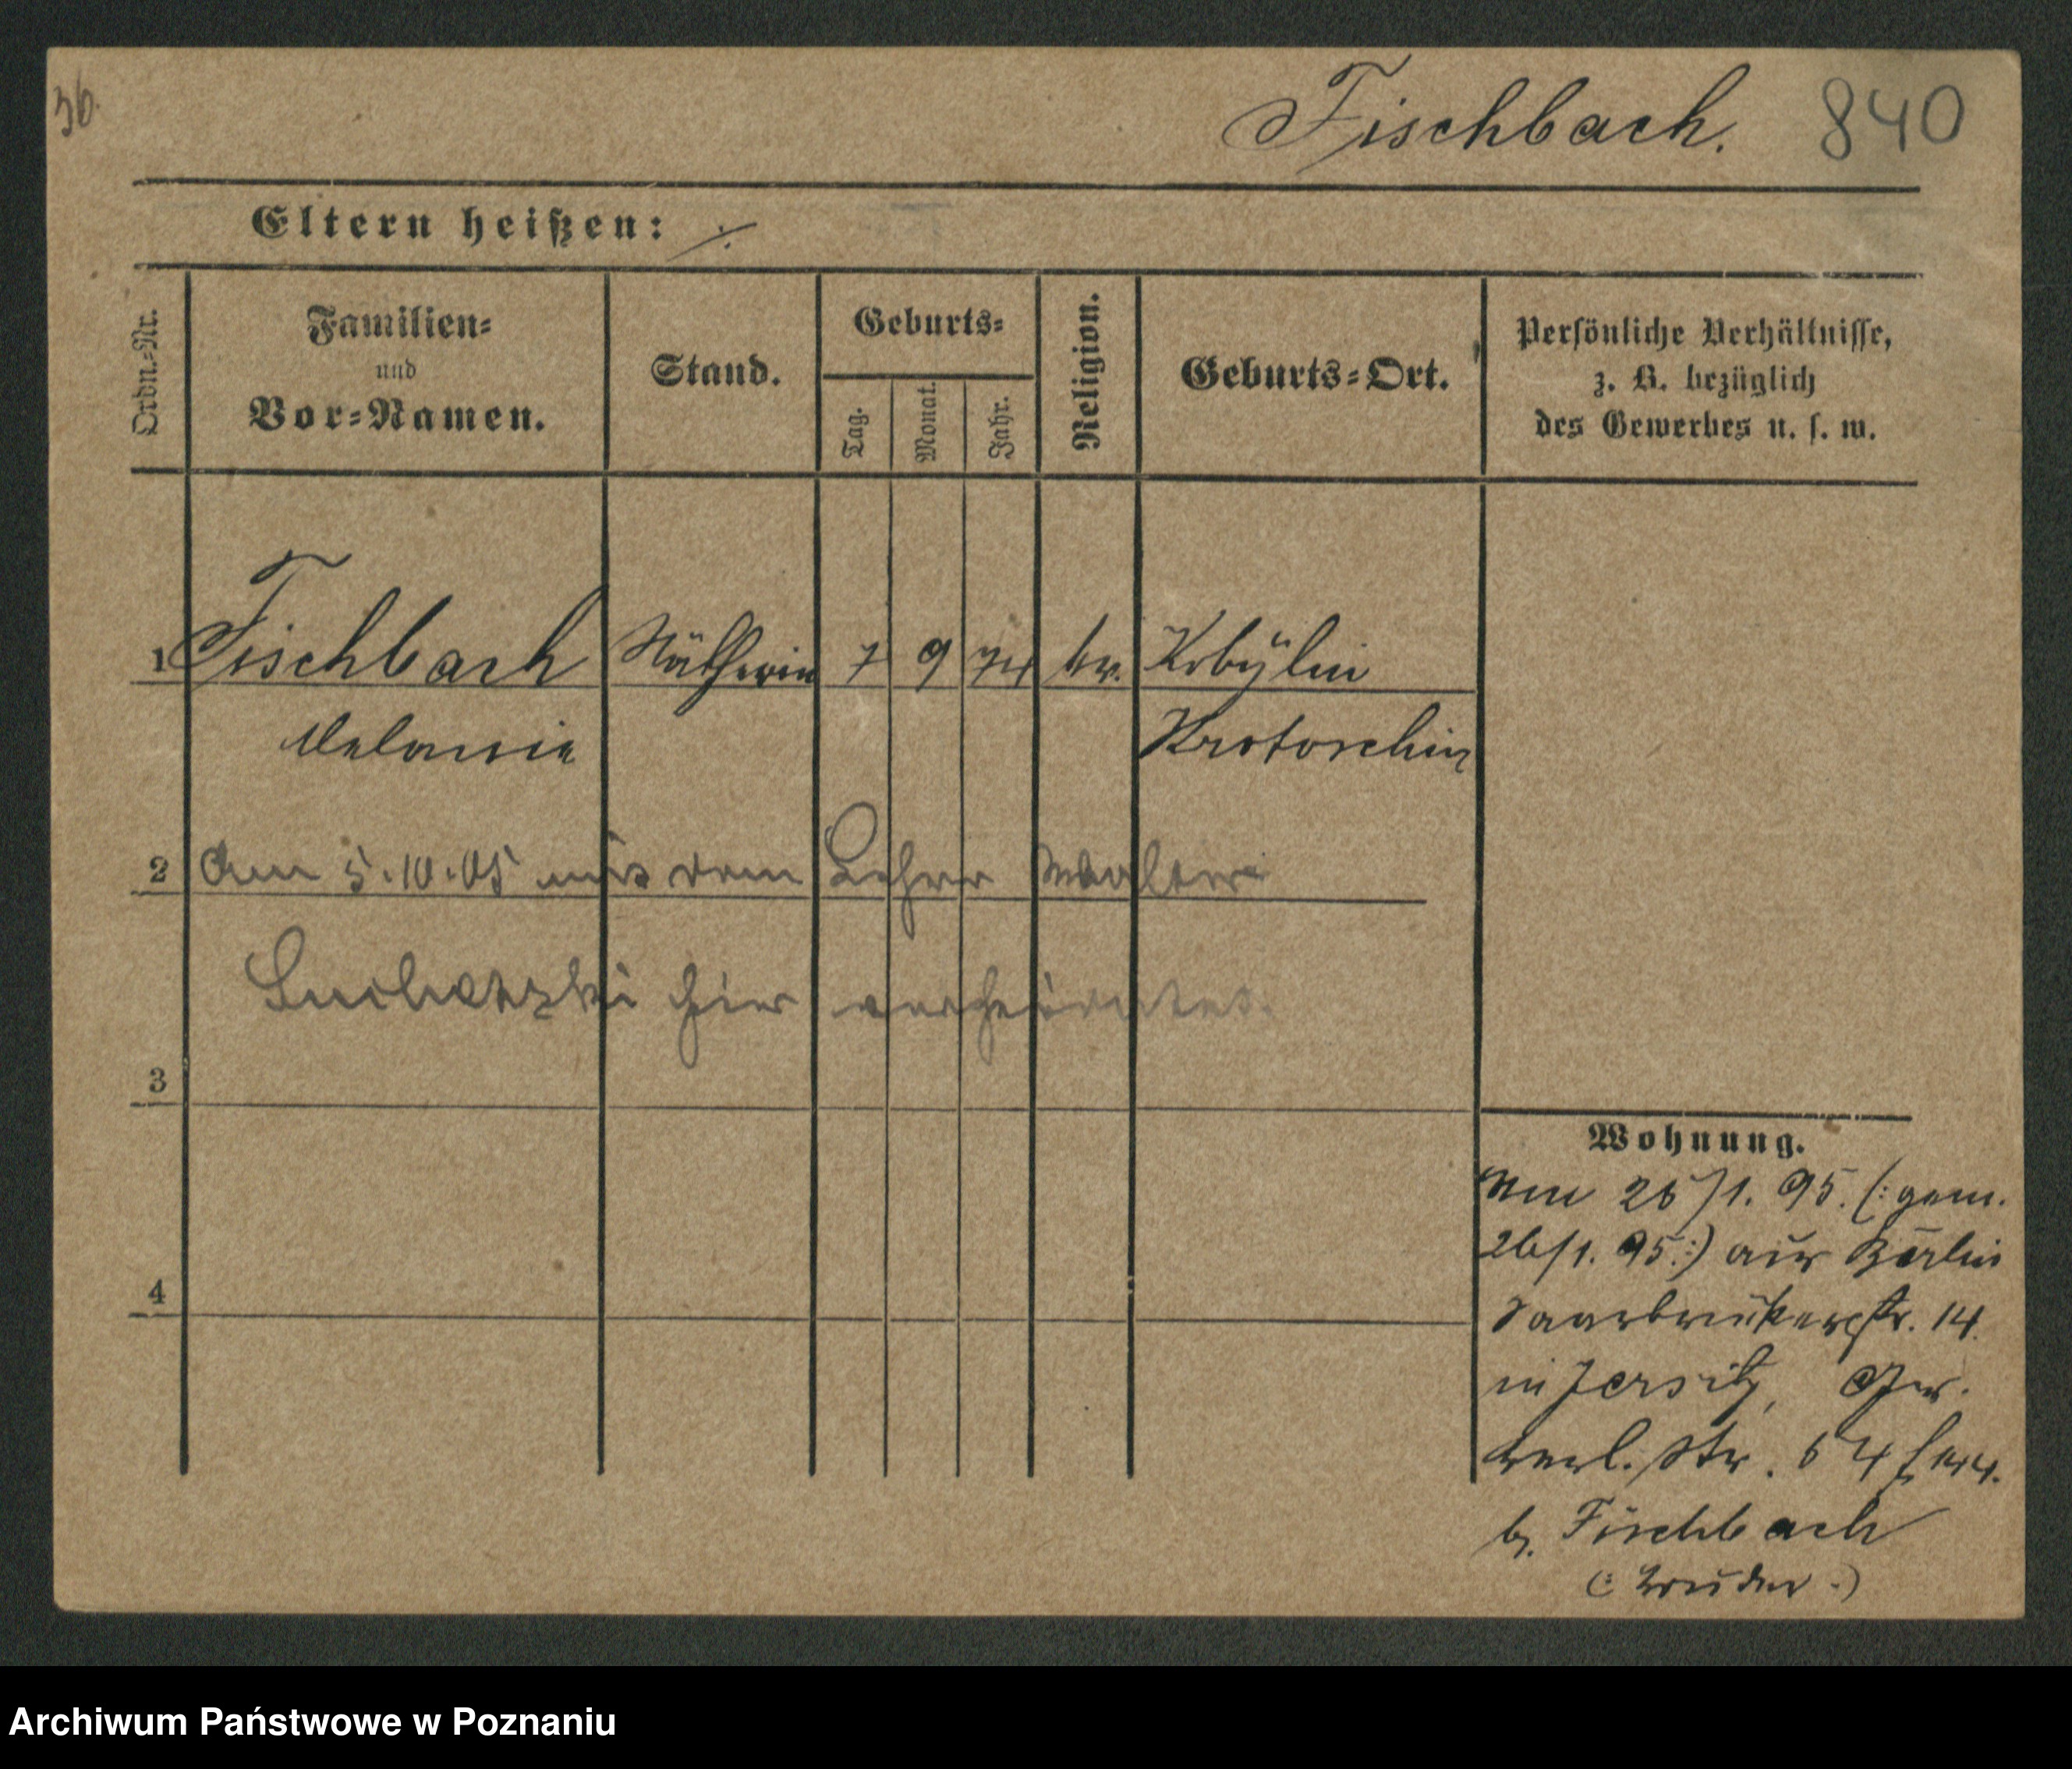 36.
Fischbach. 840
Eltern heißen: ./.
Ordn.=Nr.
Familien=
und
Vor=Namen.
Stand.
Geburts=
Tag.
Monat.
Jahr.
Religion.
Geburts=Ort.
Persönliche Verhältnisse,
z. B. bezüglich
des Gewerbes u. s. w.
1 Fischbach Nätherin 7 9 74 Kobylin
Melanie Krotoschin
2 Am 5.10.05 mit dem Walter
hier verheiratet.
3
4
Wohnung.
/1. 95. (: gem.
26/1. 95 :) aus Berlin
Saarbrükerstr. 14.
in Jersitz,
str. 
b. Fischbach
(: Bruder :)
Archiwum Państwowe w Poznaniu